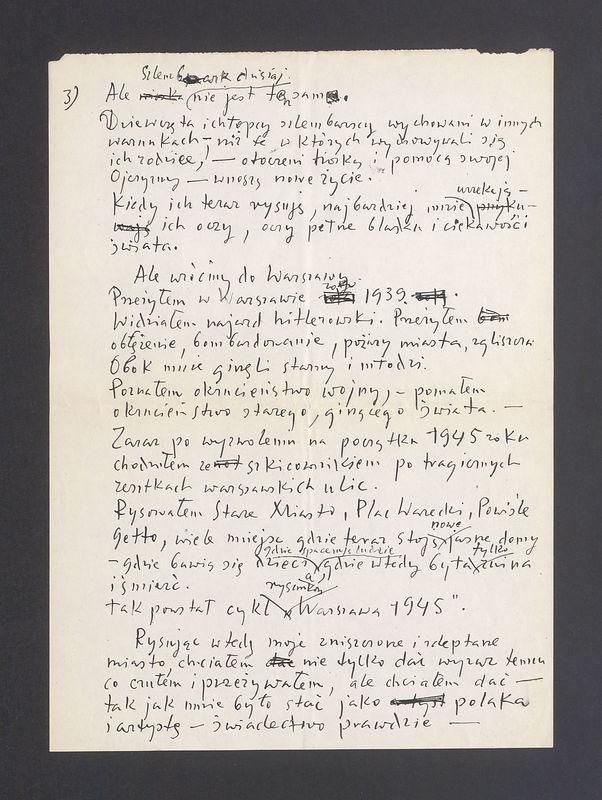 Szlembark dzisiaj.
3) Ale nie jest ten sam.
Dziewczęta i chłopcy szlembarscy wychowani w innych
warunkach – niż te w których wychowywali się
ich rodzice, – otoczeni troską i pomocą swojej
Ojczyzny – wnoszą nowe życie.
urzekają –
Kiedy ich teraz rysuję, najbardziej mnie
ich oczy, oczy pełne blasku i ciekawości
świata.
Ale wróćmy do Warszawy.
Przeżyłem w Warszawie 1939.
Widziałem najazd hitlerowski. Przeżyłem
oblężenie, bombardowanie, pożary miasta, zgliszcza.
Obok mnie ginęli starzy i młodzi.
Poznałem okrucieństwo wojny, – poznałem
okrucieństwo starego, ginącego świata. –
Zaraz po wyzwoleniu na początku 1945 roku
chodziłem ze szkicownikiem po tragicznych
resztkach warszawskich ulic.
Rysowałem Stare Miasto, Plac Warecki, Powiśle
nowe
Getto, wiele miejsc gdzie teraz stoją jasne domy
gdzie spacerują ludzie tylko
– gdzie bawią się dzieci, a gdzie wtedy była ruina
i śmierć.
rysunków
tak powstał cykl „Warszawa 1945".
Rysując wtedy moje zniszczone i zdeptane
miasto, chciałem nie tylko dać wyraz temu
co czułem i przeżywałem, ale chciałem dać –
tak jak mnie było stać jako polaka
i artystę – świadectwo prawdzie –